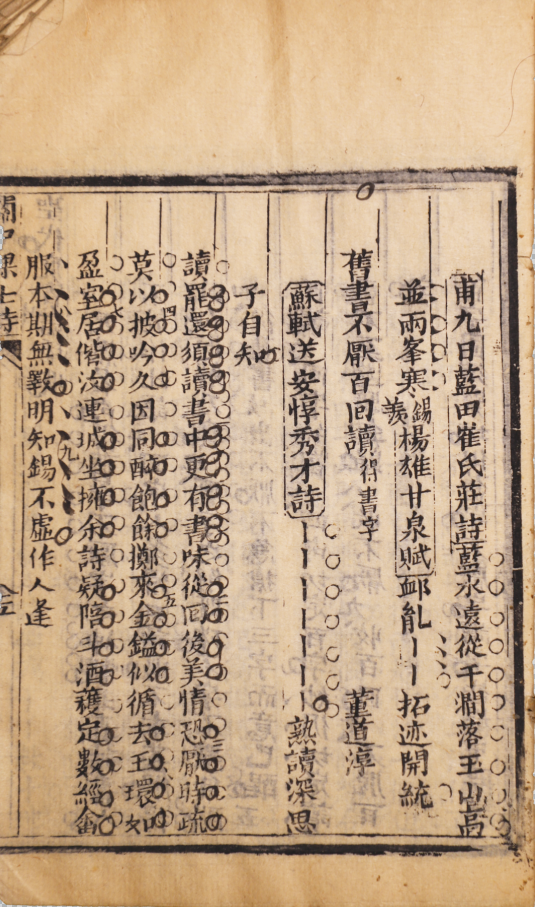 甫九日藍田崔氏莊詩藍水遠從千澗落玉山高
並兩峯寒
錫羨
楊雄甘泉賦
卹胤丨丨拓迹開統
舊書不厭百回讀
得書字
董道淳
蘇軾送安惇秀才詩丨丨丨丨丨丨丨熟讀深思
子自知
讀罷還須讀書中更有書味從回後美情恐厭時疏
莫以披吟久因同醉飽餘擲來金鎰似循去玉環如
盈室居偕汝連城坐擁余詩疑陪斗酒穫定數經畬
服本期無斁明知錫不虛作人逢